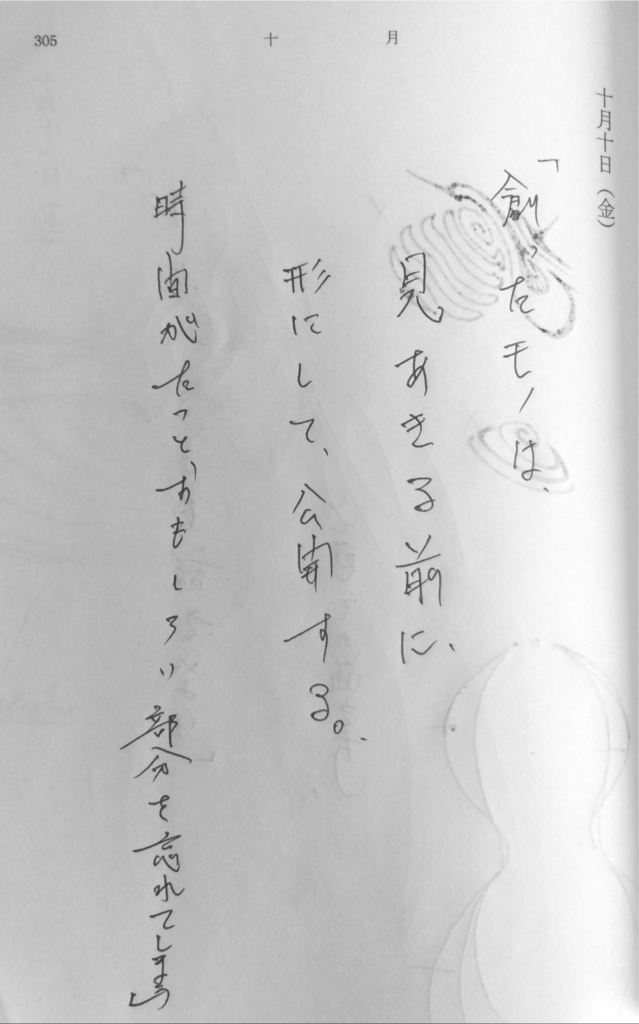 305
十月
十月十日（金）
「創ったモノは、
見あきる前に、
形にして、公開する。
時間がたつと、おもしろい部分を忘れてしまう」